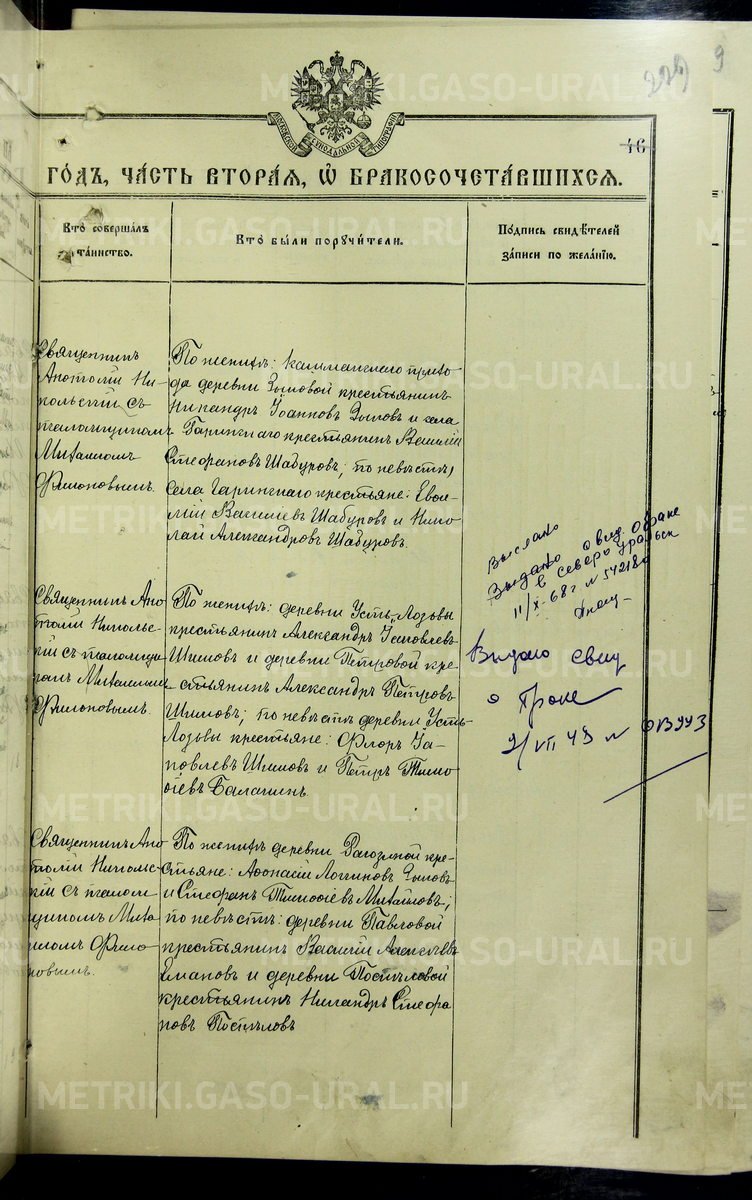 229 9
46
МОСКОВСКОЙ СѴНОДАЛЬНОЙ ТИПОГРАФІИ
ГОДЪ, ЧАСТЬ ВТОРАЯ, Ѡ БРАКОСОЧЕТАВШИХСЯ.
Кто совершалъ
таинство.
Кто были поручители.
Подпись свидѣтелей
записи по желанію.
Священникъ
Анатолій Ни-
кольскій съ
псаломщикомъ
Михаиломъ
Филоновымъ.
По женихѣ: прихо-
да деревни Зыковой крестьянинъ
Никандръ Іоанновъ Зыковъ и села
Гаринскаго крестьянинъ Василій
Стефановъ Шабуровъ; по невѣстѣ,
села Гаринскаго крестьяне: Евѳи-
мій Васильевъ Шабуровъ и Нико-
лай Александровъ Шабуровъ.
Выслано
Выдано свид. о браке
в Североуральск
11/X-68г № 542180
Священникъ Ана
толій Николь-
скій съ псаломщи
комъ Михаиломъ
Филоновымъ.
По женихѣ: деревни Усть-Лозьвы
крестьянинъ Александръ Іаковлевъ
Шишовъ и деревни Петровой кре-
стьянинъ Александръ Петровъ
Шишовъ; по невѣстѣ деревни Усть
Лозьвы крестьяне: Флоръ Іа-
ковлевъ Шишовъ и Петръ Тимо
ѳеевъ Балакинъ.
Выдано свид
о браке
2/VII 49 №
Священникъ Ана
толій Николь-
скій съ псалом
щикомъ Миха
иломъ Фило
новымъ.
По женихѣ деревни кре-
стьяне: Аѳонасій Логгиновъ Зыковъ
и Стефанъ Тимоѳеевъ Михайловъ;
по невѣстѣ: деревни Павловой
крестьянинъ Василій Алексѣевъ
Емановъ и деревни Поспѣловой
крестьянинъ Никандръ Стефа
новъ Поспѣловъ
METRIKI.GASO-URAL.RU